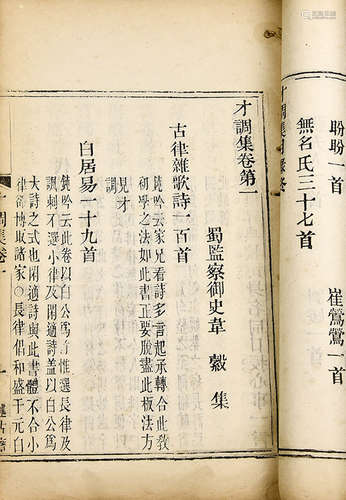 盼盼一首
崔鶯鶯一首
無名氏三十七首
才調集卷第一
蜀監察御史韋縠集
古律雜歌詩一百首
鈍吟云家兄看詩多言起承轉合此教
初學之法如此書正要脫盡此板法方
見才
調
白居易一十九首
鈍吟云此卷以白公爲 惟選長律及
諷刺不選小律及閑適詩蓋以白公爲
大詩之式也閑適詩與此書體不合小
律須博取諸家○長律倡和盛于元白
調集卷一